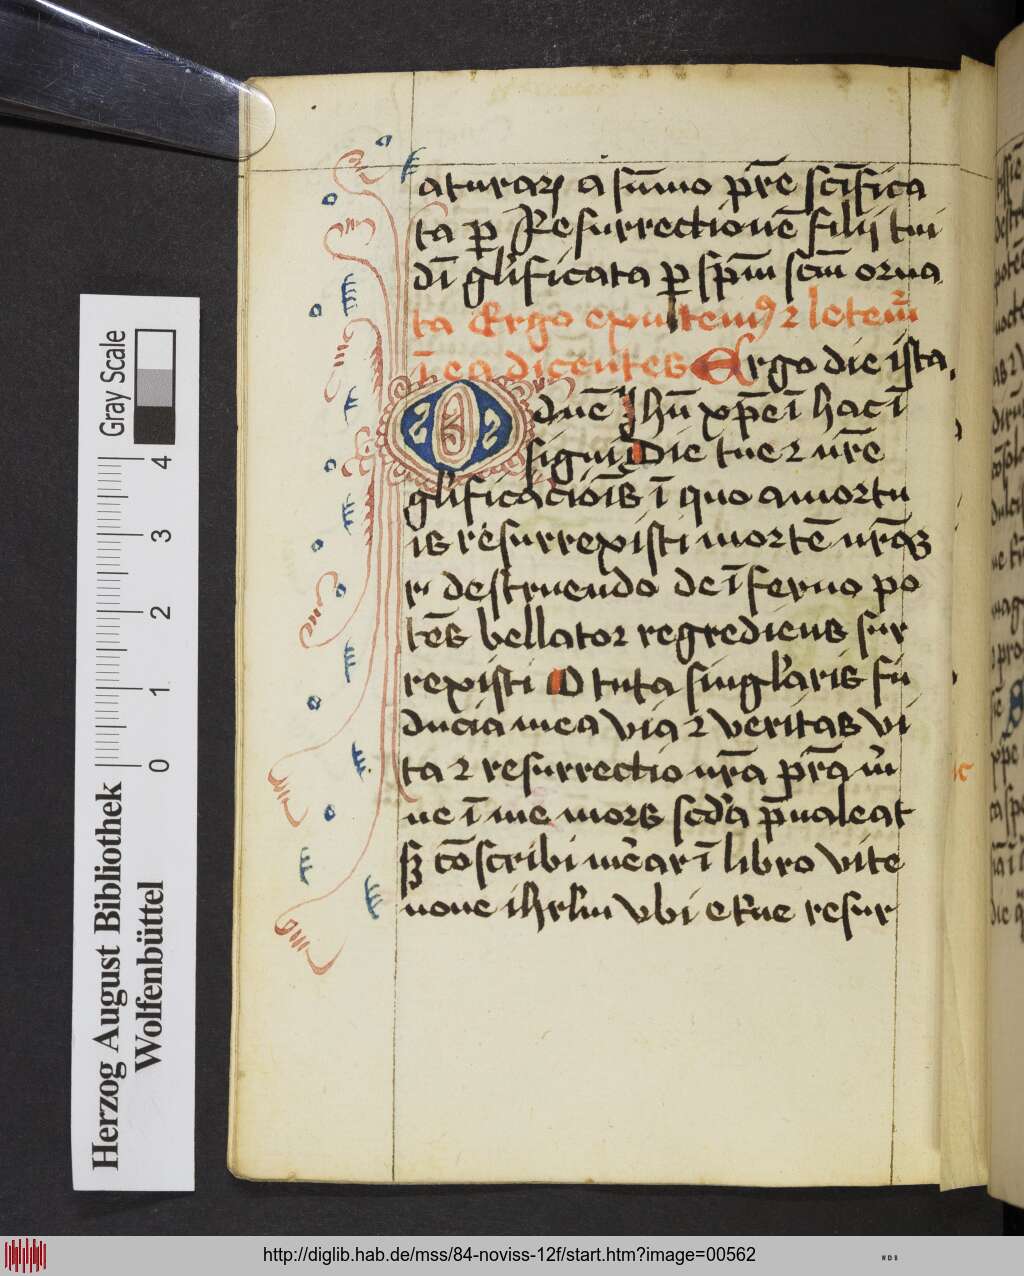 aturaꝝ a sūmo pr̄e scīfica
ta ꝑ Resurrectionē filij tui
dī glīficata ꝑ spm̄ scm̄ orna
ta Ergo exultemꝰ ⁊ letem̄
ī ea dicentes Ergo die ista
O dn̄e Jhū xp̄e ī hac ī
signi die tue ⁊ nr̄e
glīficaciōis ī quo a mortu
is resurrexisti mortē nr̄aꝫ
destruendo de īferno po
tēs bellator regrediens sur
rexisti O tuta singl'aris fi
ducia mea via ⁊ veritas vi
ta ⁊ resurrectio nr̄a
ne ī me mors scd'a p̄ualeat
sꝫ cōscribi mear ī libro vite
noue ihrl'm vbi resur
Herzog August Bibliothek
Wolfenbüttel
Gray Scale
0 1 2 3 4
http://diglib.hab.de/mss/84-noviss-12f/start.htm?image=00562